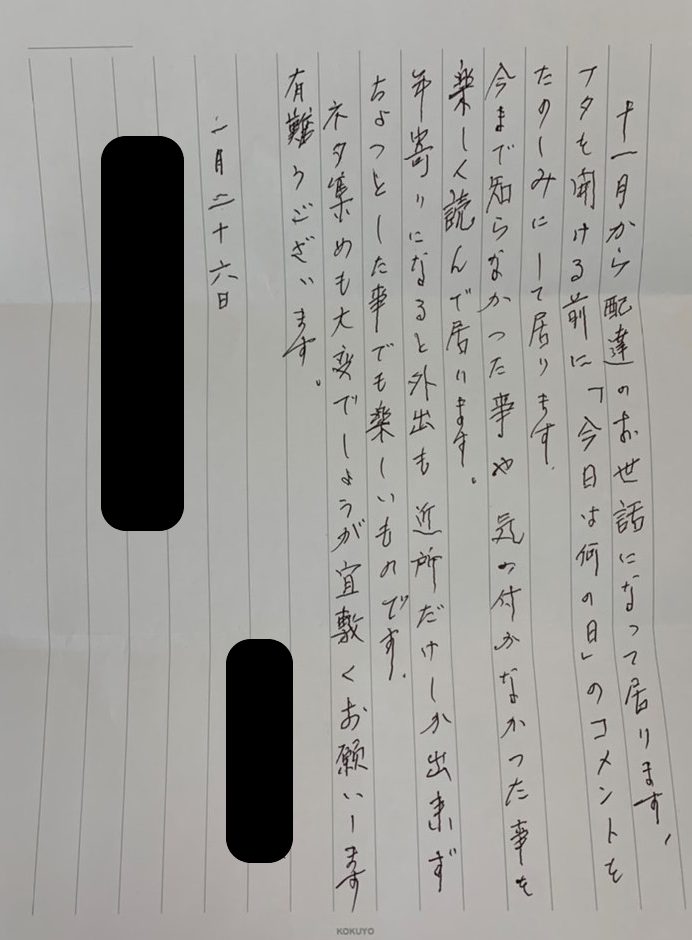 十一月から配達のお世話になって居ります、
フタを開ける前に「今日は何の日」のコメントを
たのしみにして居ります.
今まで知らなかった事や 気の付かなかった事を
楽しく読んで居ります。
年寄りになると外出も 近所だけしか出来ず
ちょっとした事でも楽しいものです.
ネタ集めも大変でしょうが宜敷くお願いします
有難うございます。
二月二十六日
KOKUYO